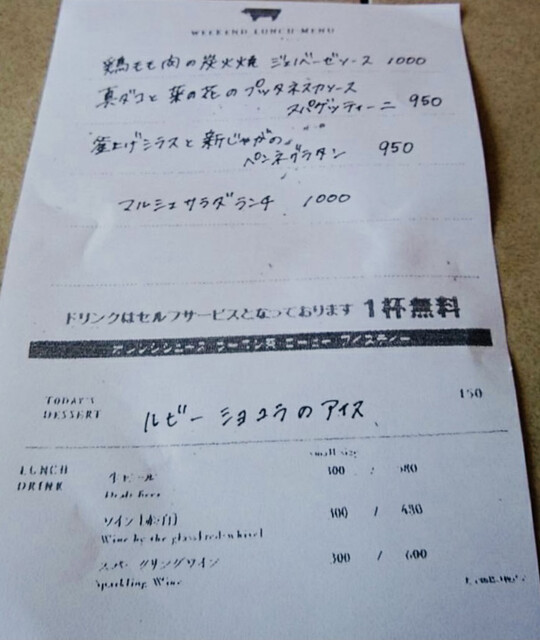 WEEKEND LUNCH MENU
鶏もも肉の炭火焼 ジェノベーゼソース 1000
真ダコと菜の花のプッタネスカソース
スパゲッティーニ 950
釜上げシラスと新じゃがの
ペンネグラタン 950
マルシェサラダランチ 1000
ドリンクはセルフサービスとなっております 1杯無料
オレンジジュース ウーロン茶 コーヒー アイスティー
TODAY'S
DESSERT
ルビーショコラのアイス
150
LUNCH
DRINK
small size
生ビール 300 / 580
Draft Beer
ワイン [赤・白] 300 / 450
Wine by the glass[red・white]
スパークリングワイン 300 / 600
Sparkling Wine